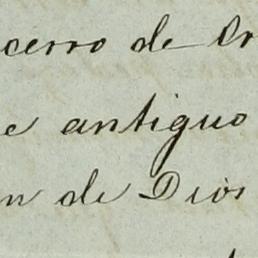 cerro de Or
e antiguo
n de Dios